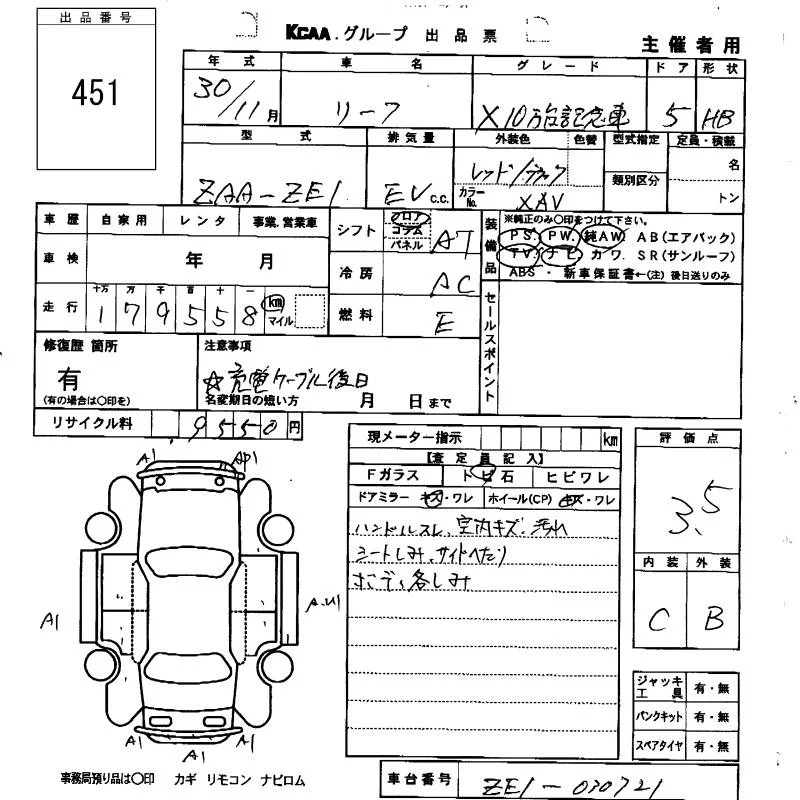 出品番号
451
KCAA.グループ 出品票
主催者用
年式 車名 グレード ドア 形状
30/11月 リーフ X10万台記念車 5 HB
型式 排気量 外装色 色替 型式指定 定員・積載
ZAA-ZE1 EV c.c. レッド/ブラック 類別区分 名
カラーNo. XAV トン
車歴 自家用 レンタ 事業.営業車
シフト フロア コラム パネル AT
車検 年 月
冷房 AC
走行 十万 万 千 百 十 一
179558 km マイル
燃料 E
装備品
※純正のみ〇印をつけて下さい。
PS. PW. 純AW. AB(エアバック)
TV. ナビ カワ. SR(サンルーフ)
ABS・新車保証書←(注)後日送りのみ
セールスポイント
修復歴 箇所
有
(有の場合は〇印を)
注意事項
☆充電ケーブル後日
名変期日の短い方 月 日まで
リサイクル料 9550円
現メーター指示 km
【査定員記入】
Fガラス トビ石 ヒビワレ
ドアミラー キズ・ワレ ホイール(CP) キズ・ワレ
ハンドルスレ、室内キズ、汚れ
シートしみ、サイドへたり
ボディ各しみ
評価点
3.5
内装 外装
C B
A1 AP1
A1
A1 A1 A1
ジャッキ工具 有・無
パンクキット 有・無
スペアタイヤ 有・無
事務局預り品は〇印 カギ リモコン ナビロム
車台番号 ZE1-030721